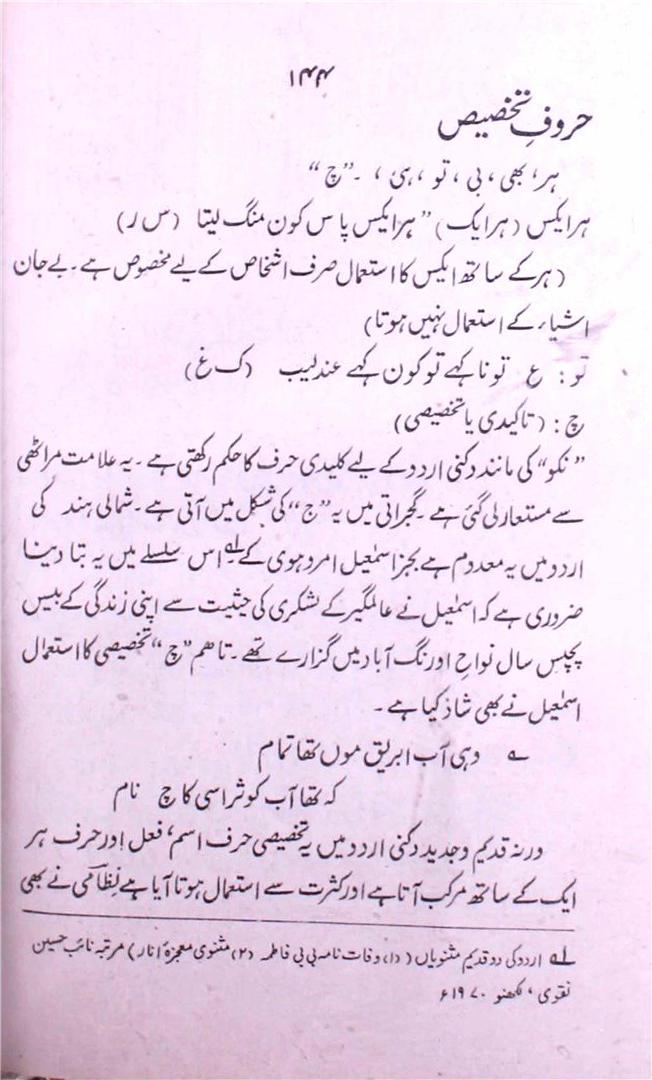 ۱۴۴
حروفِ تخصیص
ہر، بھی، بی، تو، ہی، ۔ "چ"
ہرایکس (ہرایک) "ہرایکس پاس کون منگ لیتا (س ر)
(ہر کے ساتھ ایکس کا استعمال صرف اشخاص کے لیے مخصوص ہے۔ بے جان
اشیاء کے استعمال نہیں ہوتا)
تو: ع تو نا کہے تو کون کہے عندلیب (ک غ)
چ: (تاکیدی یا تخصیصی)
"نکو" کی مانند دکنی اردو کے لیے کلیدی حرف کا حکم رکھتی ہے۔ یہ علامت مراٹھی
سے مستعار لی گئی ہے۔ گجراتی میں یہ "ج" کی شکل میں آتی ہے۔ شمالی ہند کی
اردو میں یہ معدوم ہے بجز اسمٰعیل امردہوی کے لہ اس سلسلے میں یہ بتا دینا
ضروری ہے کہ اسمٰعیل نے عالمگیر کے لشکری کی حیثیت سے اپنی زندگی کے بیس
پچیس سال نواحِ اورنگ آباد میں گزارے تھے۔ تاہم "چ" تخصیصی کا استعمال
اسمٰعیل نے بھی شاذ کیا ہے۔
؎ وہی آب ابریق موں تھا تمام
کہ تھا آب کوثر اسی کا چ نام
ورنہ قدیم و جدید دکنی اردو میں یہ تخصیصی حرف اسم، فعل اور حرف ہر
ایک کے ساتھ مرکب آتا ہے اور کثرت سے استعمال ہوتا آیا ہے نظامی نے بھی
لہ اردو کی دو قدیم مثنویاں ((۱) وفات نامہ بی بی فاطمہ (۲) مثنوی معجزۂ انار) مرتبہ نائب حسین
نقوی، لکھنو ۱۹۷۰ء